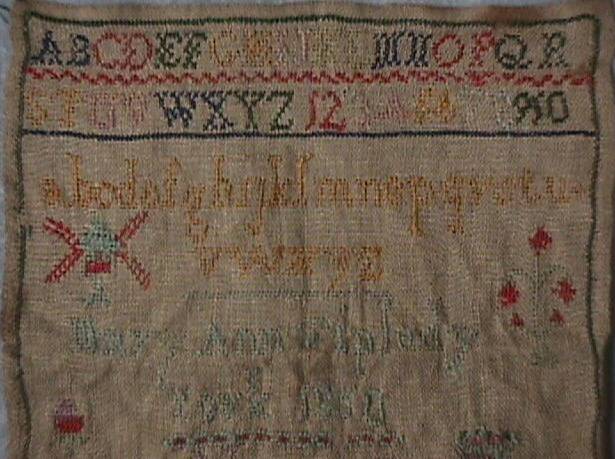 ABCDEFGHIJKLMNOPQR
STUVWXYZ 1234567890
abcdefghijklmnopqrstu
vwxyz
Mary Ann